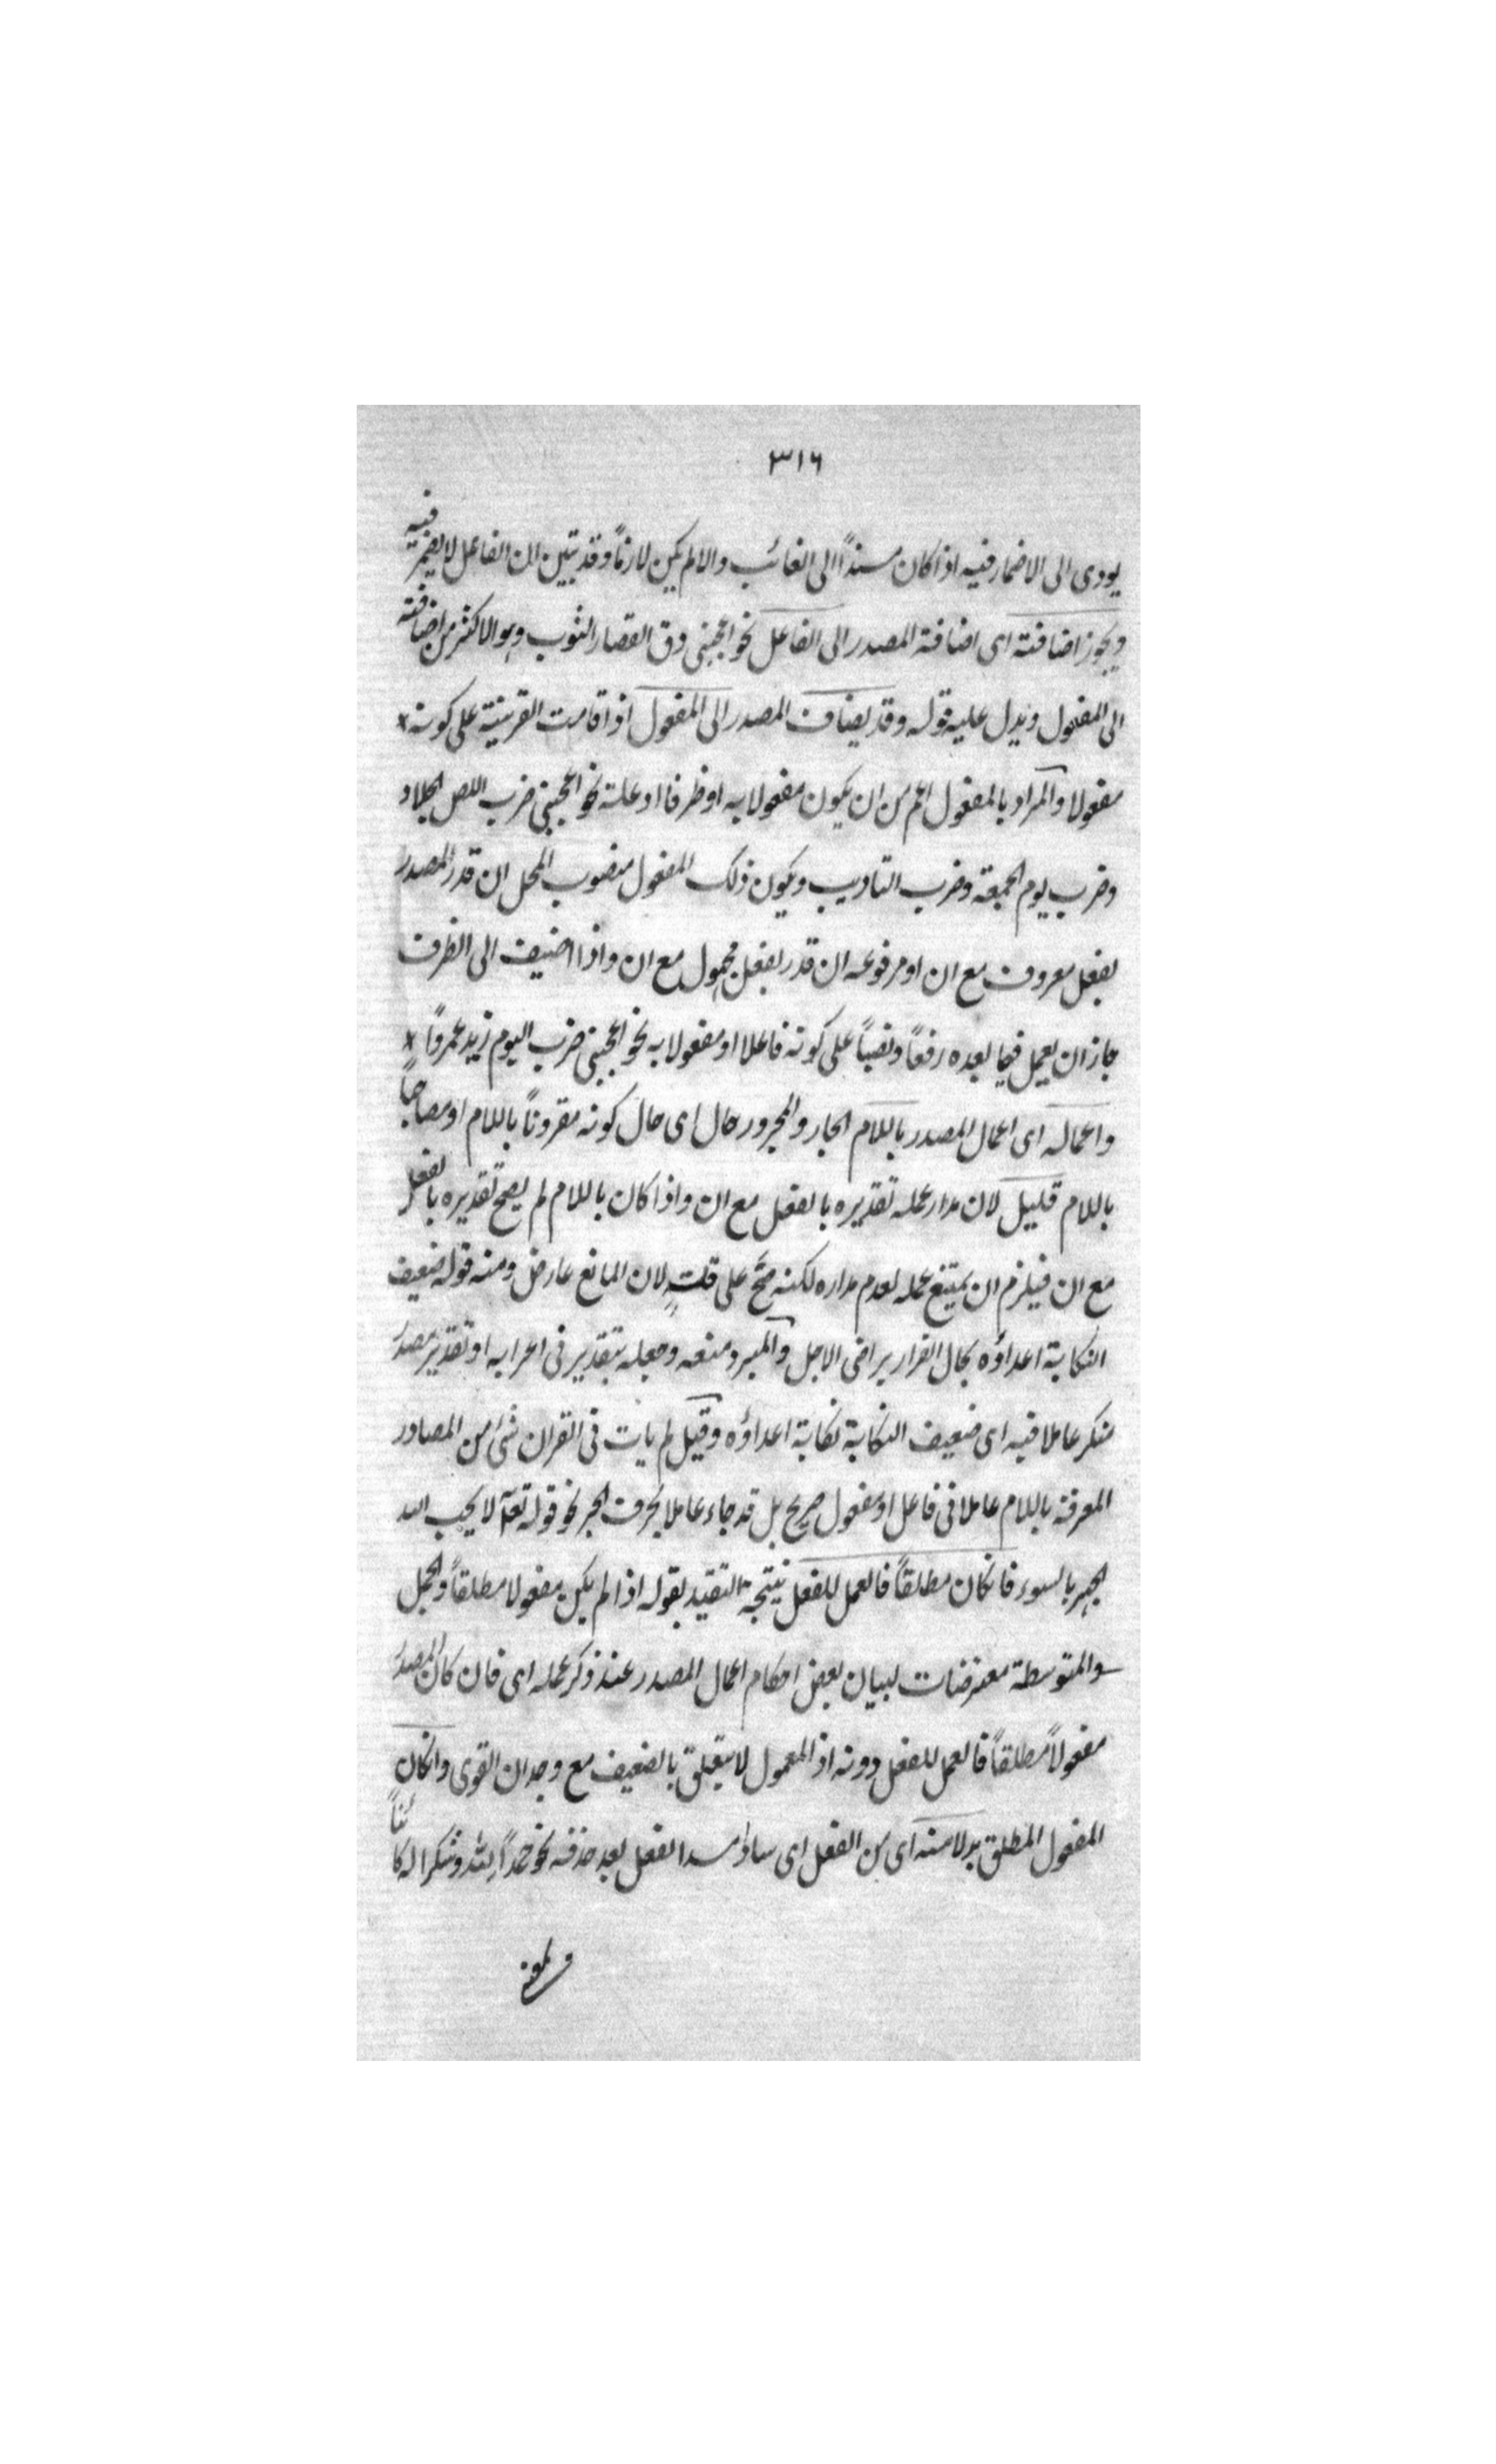 ٣١٦
يودى الى الاضمار فيه اذا كان مسنداً الى الغائب والا لم يكن لازماً وقد تبين ان الفاعل لا يضمر فيه
ويجوز اضافته اى اضافة المصدر الى الفاعل نحو اعجبنى دق القصار الثوب وهو الاكثر من اضافته
الى المفعول ويدل عليه قوله وقد يضاف المصدر الى المفعول اذا قامت القرينة على كونه
مفعولا والمراد بالمفعول اعم من ان يكون مفعولا به او ظرفا او علة نحو اعجبنى ضرب اللص الجلاد
وضرب يوم الجمعة وضرب التاديب ويكون ذلك المفعول منصوب المحل ان قدر المصدر
بفعل معروف مع ان او مرفوعه ان قدر بفعل مجهول مع ان واذا اضيف الى الظرف
جاز ان يعمل فيما بعده رفعاً ونصباً على كونه فاعلا او مفعولا به نحو اعجبنى ضرب اليوم زيد عمرواً
واعماله اى اعمال المصدر باللام الجار والمجرور حال اى حال كونه مقروناً باللام او مصاحباً
باللام قليل لان مدار عمله تقديره بالفعل مع ان واذا كان باللام لم يصح تقديره بالفعل
مع ان فيلزم ان يمتنع عمله لعدم مداره لكنه صح على قلةٍ لان المانع عارض ومنه قوله ضعيف
النكاية اعداؤه يخال الفرار يراخى الاجل والمبرد منعه وجعله بتقدير فى اعرابه او تقدير مصدر
منكر عاملا فيه اى ضعيف النكاية نكاية اعداؤه وقيل لم يات فى القران شئ من المصادر
المعرفة باللام عاملا فى فاعل او مفعول صريح بل قد جاء عاملا بحرف الجر نحو قوله تعآ لا يحب الله
الجهر بالسوء فانكان مطلقاً فالعمل للفعل نتيجة التقيد بقوله اذا لم يكن مفعولا مطلقاً والجمل
والمتوسطة معترضات لبيان بعض احكام اعمال المصدر عند ذكر عمله اى فان كان المصدر
مفعولاً مطلقاً فالعمل للفعل دونه اذ المعمول لا يتعلق بالضعيف مع وجدان القوى وانكان
المفعول المطلق بدلا منه اى من الفعل اى سادا مسد الفعل بعد حذفه نحو حمداً لله وشكرا له كائناً